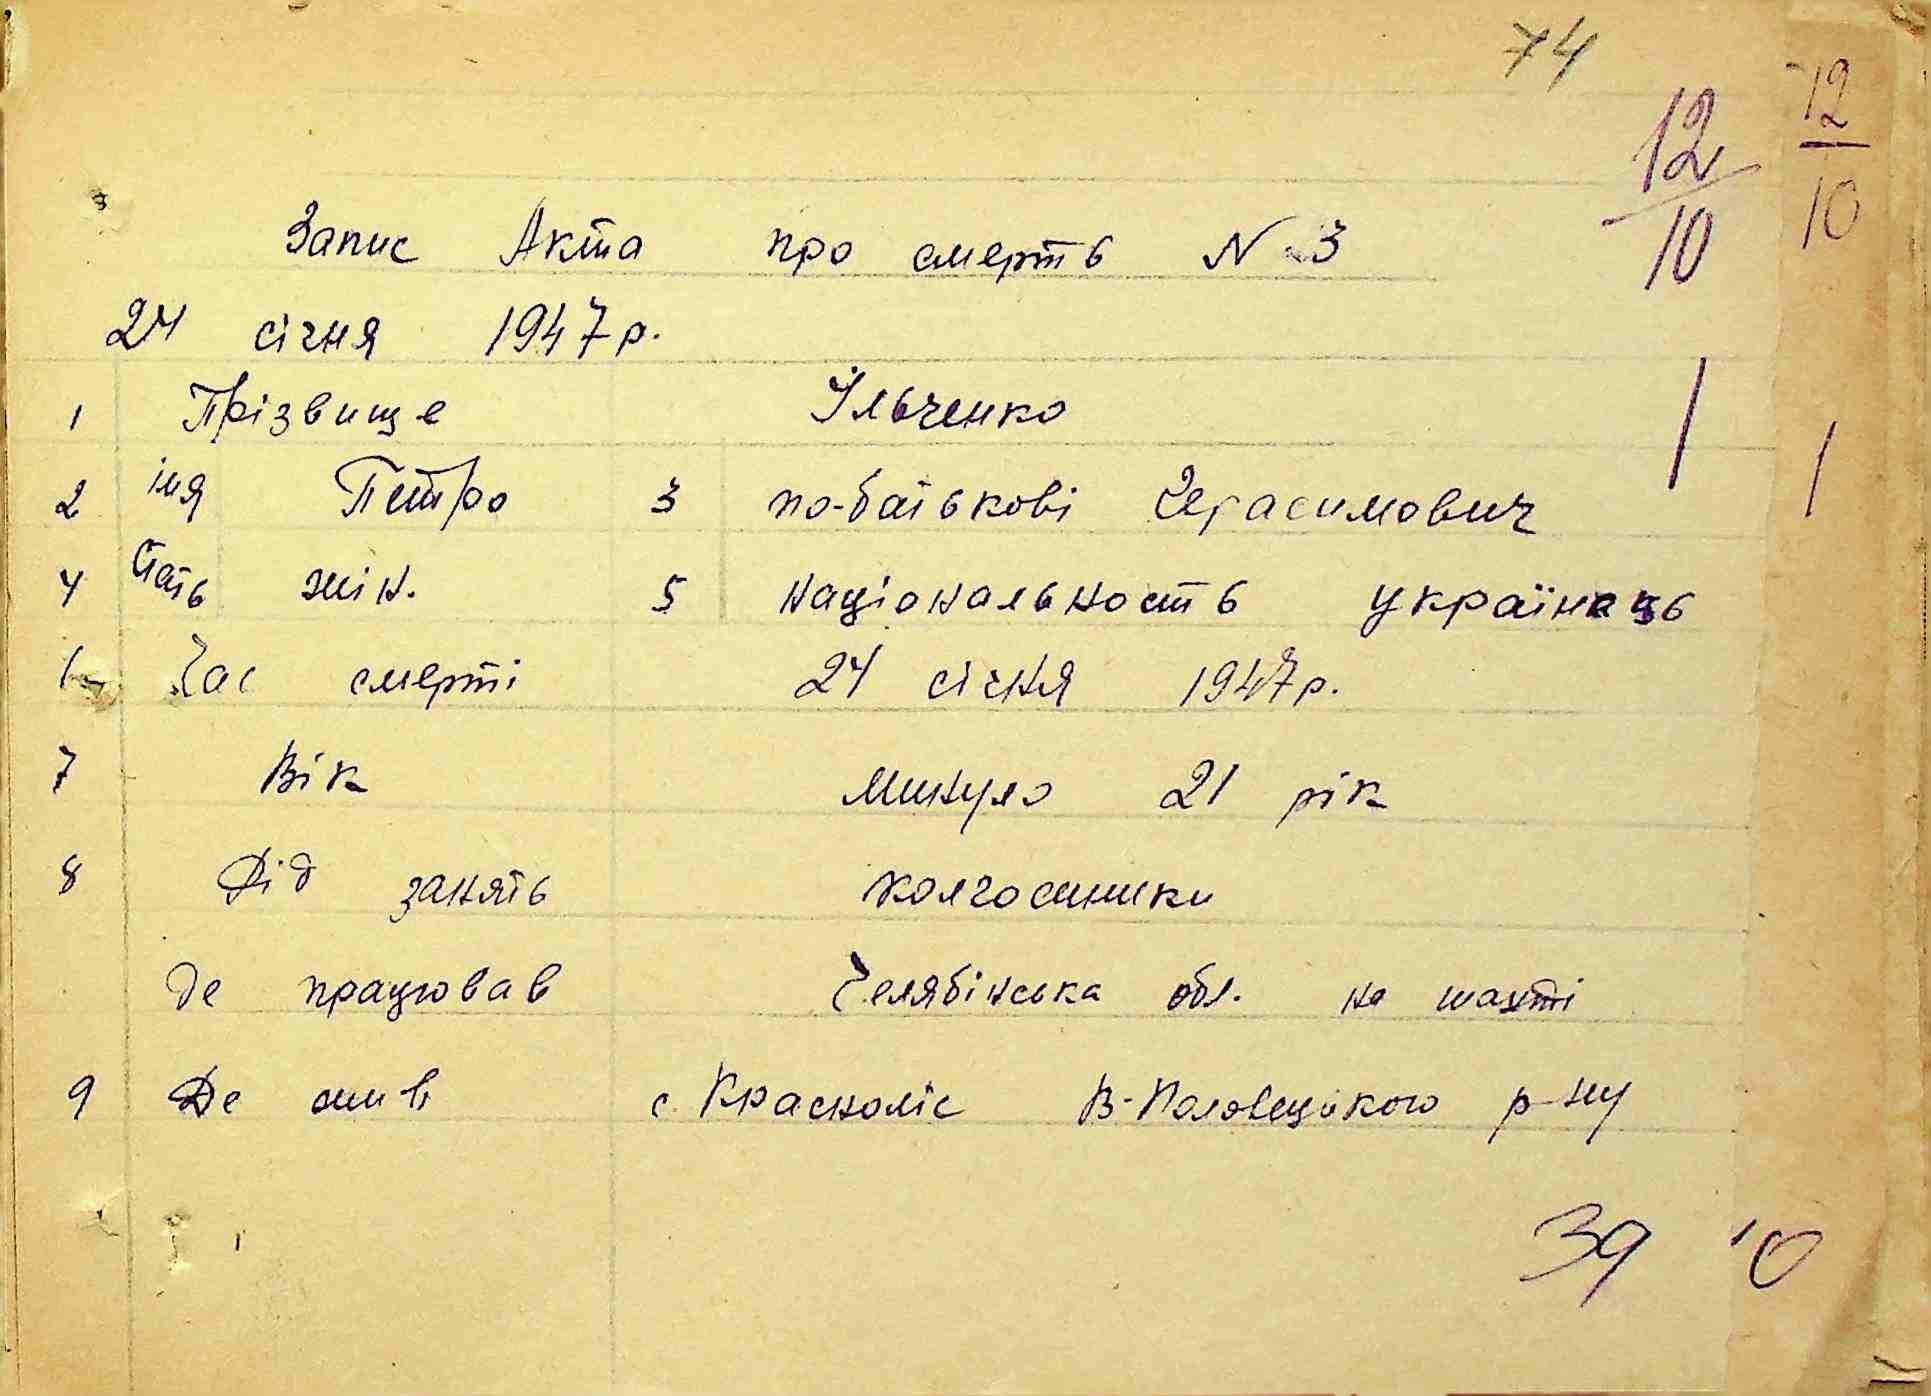 74
12/10
12/10
Запис Акта про смерть N 3
24 січня 1947р.
1 Прізвище Ільченко
2 імя Петро 3 по-батькові Герасимович
4 Стать жін. 5 національность українець
6 Час смерті 24 січня 1947р.
7 Вік Минуло 21 рік
8 Рід занять колгоспники
де працював Челябінська обл. на шахті
9 Де жив с. Красноліс В-Половецького р-ну
39 10